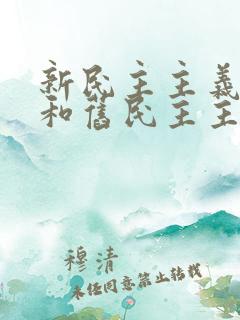 新民主主義
和舊民主主
穆清
未经同意禁止转载